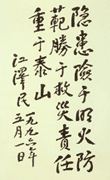 隐患險于明火防
範勝于救災責任
重于泰山
江澤民
一九九六年
五月一日